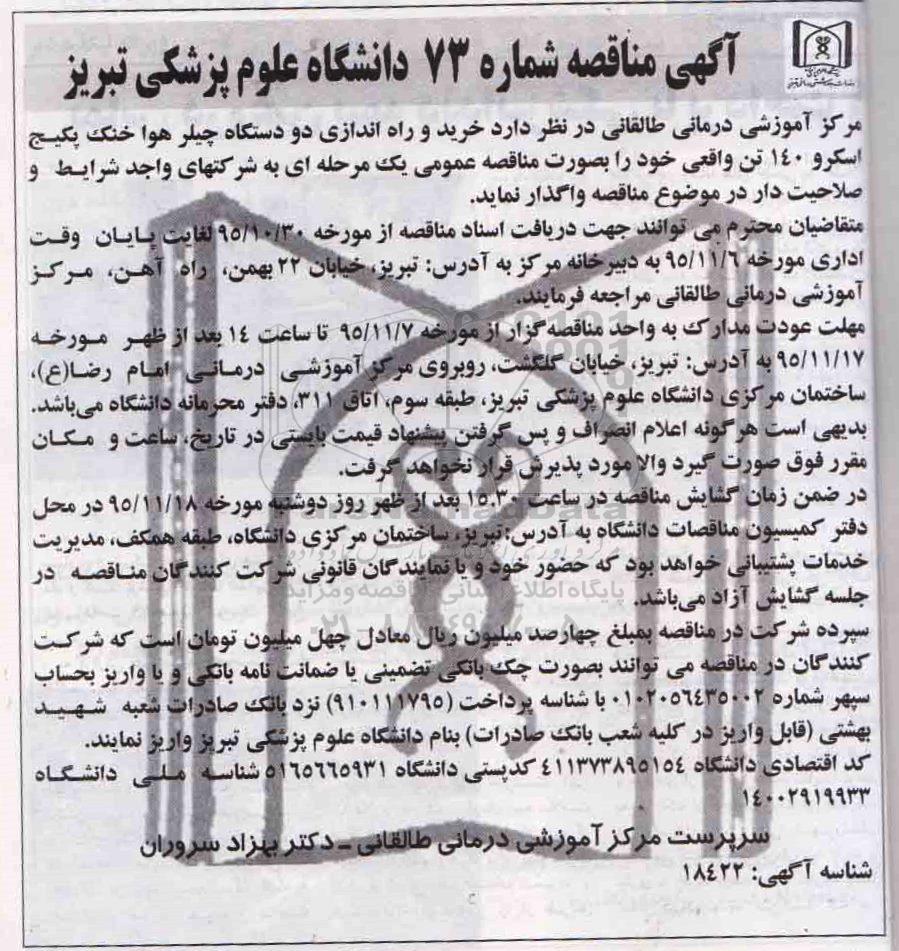 آگهی مناقصه شماره ۷۳ دانشگاه علوم پزشکی تبریز
مرکز آموزشی درمانی طالقانی در نظر دارد خرید و راه اندازی دو دستگاه چیلر هوا خنک پکیج
اسکرو ۱۴۰ تن واقعی خود را بصورت مناقصه عمومی یک مرحله ای به شرکتهای واجد شرایط و
صلاحیت دار در موضوع مناقصه واگذار نماید.
متقاضیان محترم می توانند جهت دریافت اسناد مناقصه از مورخه ۹۵/۱۰/۳۰ لغایت پایان وقت
اداری مورخه ۹۵/۱۱/۶ به دبیرخانه مرکز به آدرس: تبریز، خیابان ۲۲ بهمن، راه آهن، مرکز
آموزشی درمانی طالقانی مراجعه فرمایند.
مهلت عودت مدارک به واحد مناقصه‌گزار از مورخه ۹۵/۱۱/۷ تا ساعت ۱۴ بعد از ظهر مورخه
۹۵/۱۱/۱۷ به آدرس: تبریز، خیابان گلگشت، روبروی مرکز آموزشی درمانی امام رضا(ع)،
ساختمان مرکزی دانشگاه علوم پزشکی تبریز، طبقه سوم، اتاق ۳۱۱، دفتر محرمانه دانشگاه می‌باشد.
بدیهی است هرگونه اعلام انصراف و پس گرفتن پیشنهاد قیمت بایستی در تاریخ، ساعت و مکان
مقرر فوق صورت گیرد والا مورد پذیرش قرار نخواهد گرفت.
در ضمن زمان گشایش مناقصه در ساعت ۱۵.۳۰ بعد از ظهر روز دوشنبه مورخه ۹۵/۱۱/۱۸ در محل
دفتر کمیسیون مناقصات دانشگاه به آدرس:تبریز، ساختمان مرکزی دانشگاه، طبقه همکف، مدیریت
خدمات پشتیبانی خواهد بود که حضور خود و یا نمایندگان قانونی شرکت کنندگان مناقصه در
جلسه گشایش آزاد می‌باشد.
سپرده شرکت در مناقصه بمبلغ چهارصد میلیون ریال معادل چهل میلیون تومان است که شرکت
کنندگان در مناقصه می توانند بصورت چک بانکی تضمینی یا ضمانت نامه بانکی و یا واریز بحساب
سپهر شماره ۰۱۰۲۰۵۶۴۳۵۰۰۲ با شناسه پرداخت (۹۱۰۱۱۱۷۹۵) نزد بانک صادرات شعبه شهید
بهشتی (قابل واریز در کلیه شعب بانک صادرات) بنام دانشگاه علوم پزشکی تبریز واریز نمایند.
کد اقتصادی دانشگاه ۴۱۱۳۷۳۸۹۵۱۵۴ کدپستی دانشگاه ۵۱۶۵۶۶۵۹۳۱ شناسه ملی دانشگاه
۱۴۰۰۲۹۱۹۹۳۳
سرپرست مرکز آموزشی درمانی طالقانی ـ دکتر بهزاد سروران
شناسه آگهی: ۱۸۴۲۲